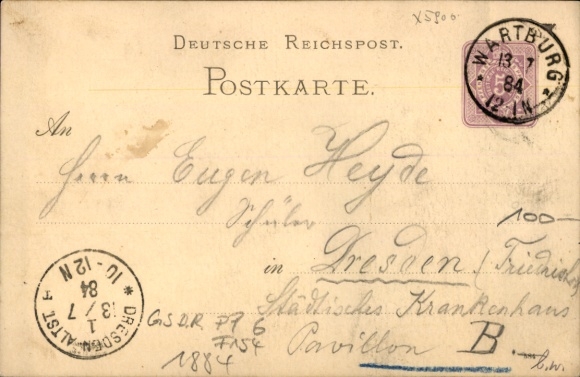 X5900
DEUTSCHE REICHSPOST.
POSTKARTE.
WARTBURG
13 7
84
12-1 N
5
An
Herrn Eugen Heyde
Schüler
100-
in Dresden / Friedrich
Städtisches Krankenhaus
Pavillon B.
b.w.
DRESDEN ALTST
1
13 / 7
84
10-12 N
1884